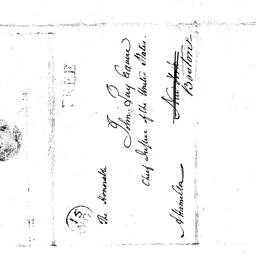 FREE
15
The Honorable
John Jay Esquire
Chief Justice of the United States.
New York
Boston
A Hamilton